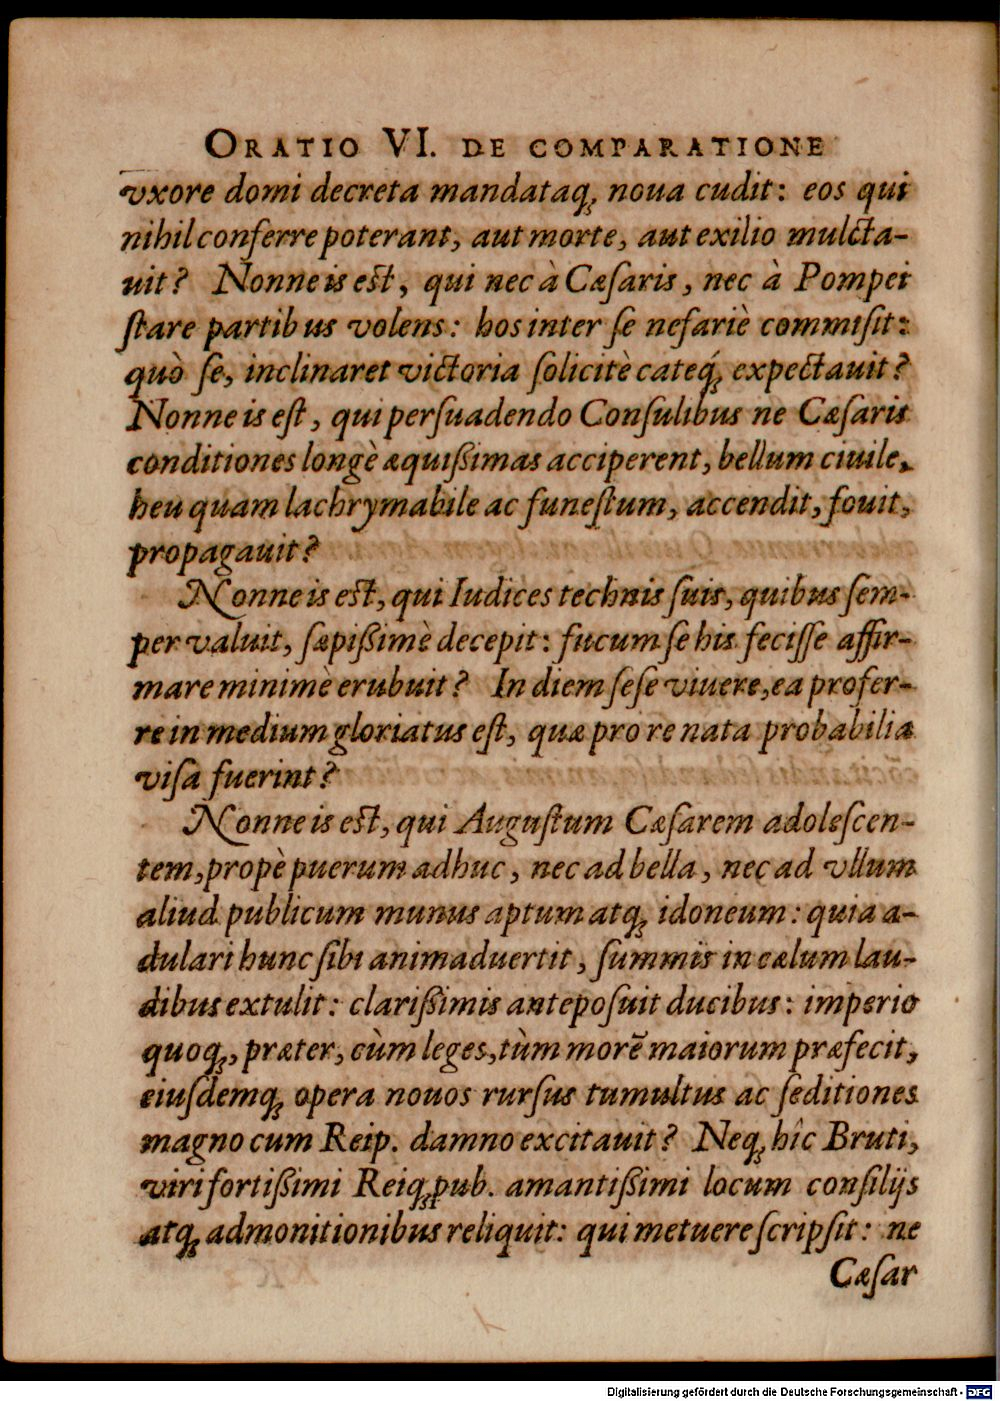 ORATIO VI. DE COMPARATIONE
vxore domi decreta mandataq́ꝫ noua cudit: eos qui
nihil conferre poterant, aut morte, aut exilio mulcta-
uit? Nonne is est, qui nec à Cæſaris, nec à Pompei
ſtare partibus volens: hos inter ſe nefariè commiſit:
quò ſe, inclinaret victoria ſolicitè cateq́ꝫ expectauit?
Nonne is eſt, qui perſuadendo Conſulibus ne Cæſaris
conditiones longè æquißimas acciperent, bellum ciuile,
heu quam lachrymabile ac funeſtum, accendit, fouit,
propagauit?
Nonne is est, qui Iudices technis ſuis, quibus ſem-
per valuit, ſæpißimè decepit: fucum ſe his feciſſe affir-
mare minimè erubuit? In diem ſeſe viuere, ea profer-
re in medium gloriatus eſt, quæ pro re nata probabilia
viſa fuerint?
Nonne is est, qui Auguſtum Cæſarem adoleſcen-
tem, propè puerum adhuc, nec ad bella, nec ad vllum
aliud publicum munus aptum atqꝫ idoneum: quia a-
dulari hunc ſibi animaduertit, ſummis in cælum lau-
dibus extulit: clarißimis antepoſuit ducibus: imperio
quoqꝫ, præter, cùm leges, tùm morẽ maiorum præfecit,
eiuſdemqꝫ opera nouos rurſus tumultus ac ſeditiones
magno cum Reip. damno excitauit? Neqꝫ hîc Bruti,
viri fortißimi Reiqꝫ pub. amantißimi locum conſilijs
atqꝫ admonitionibus reliquit: qui metuere ſcripſit: ne
Cæſar
Digitalisierung gefördert durch die Deutsche Forschungsgemeinschaft - DFG